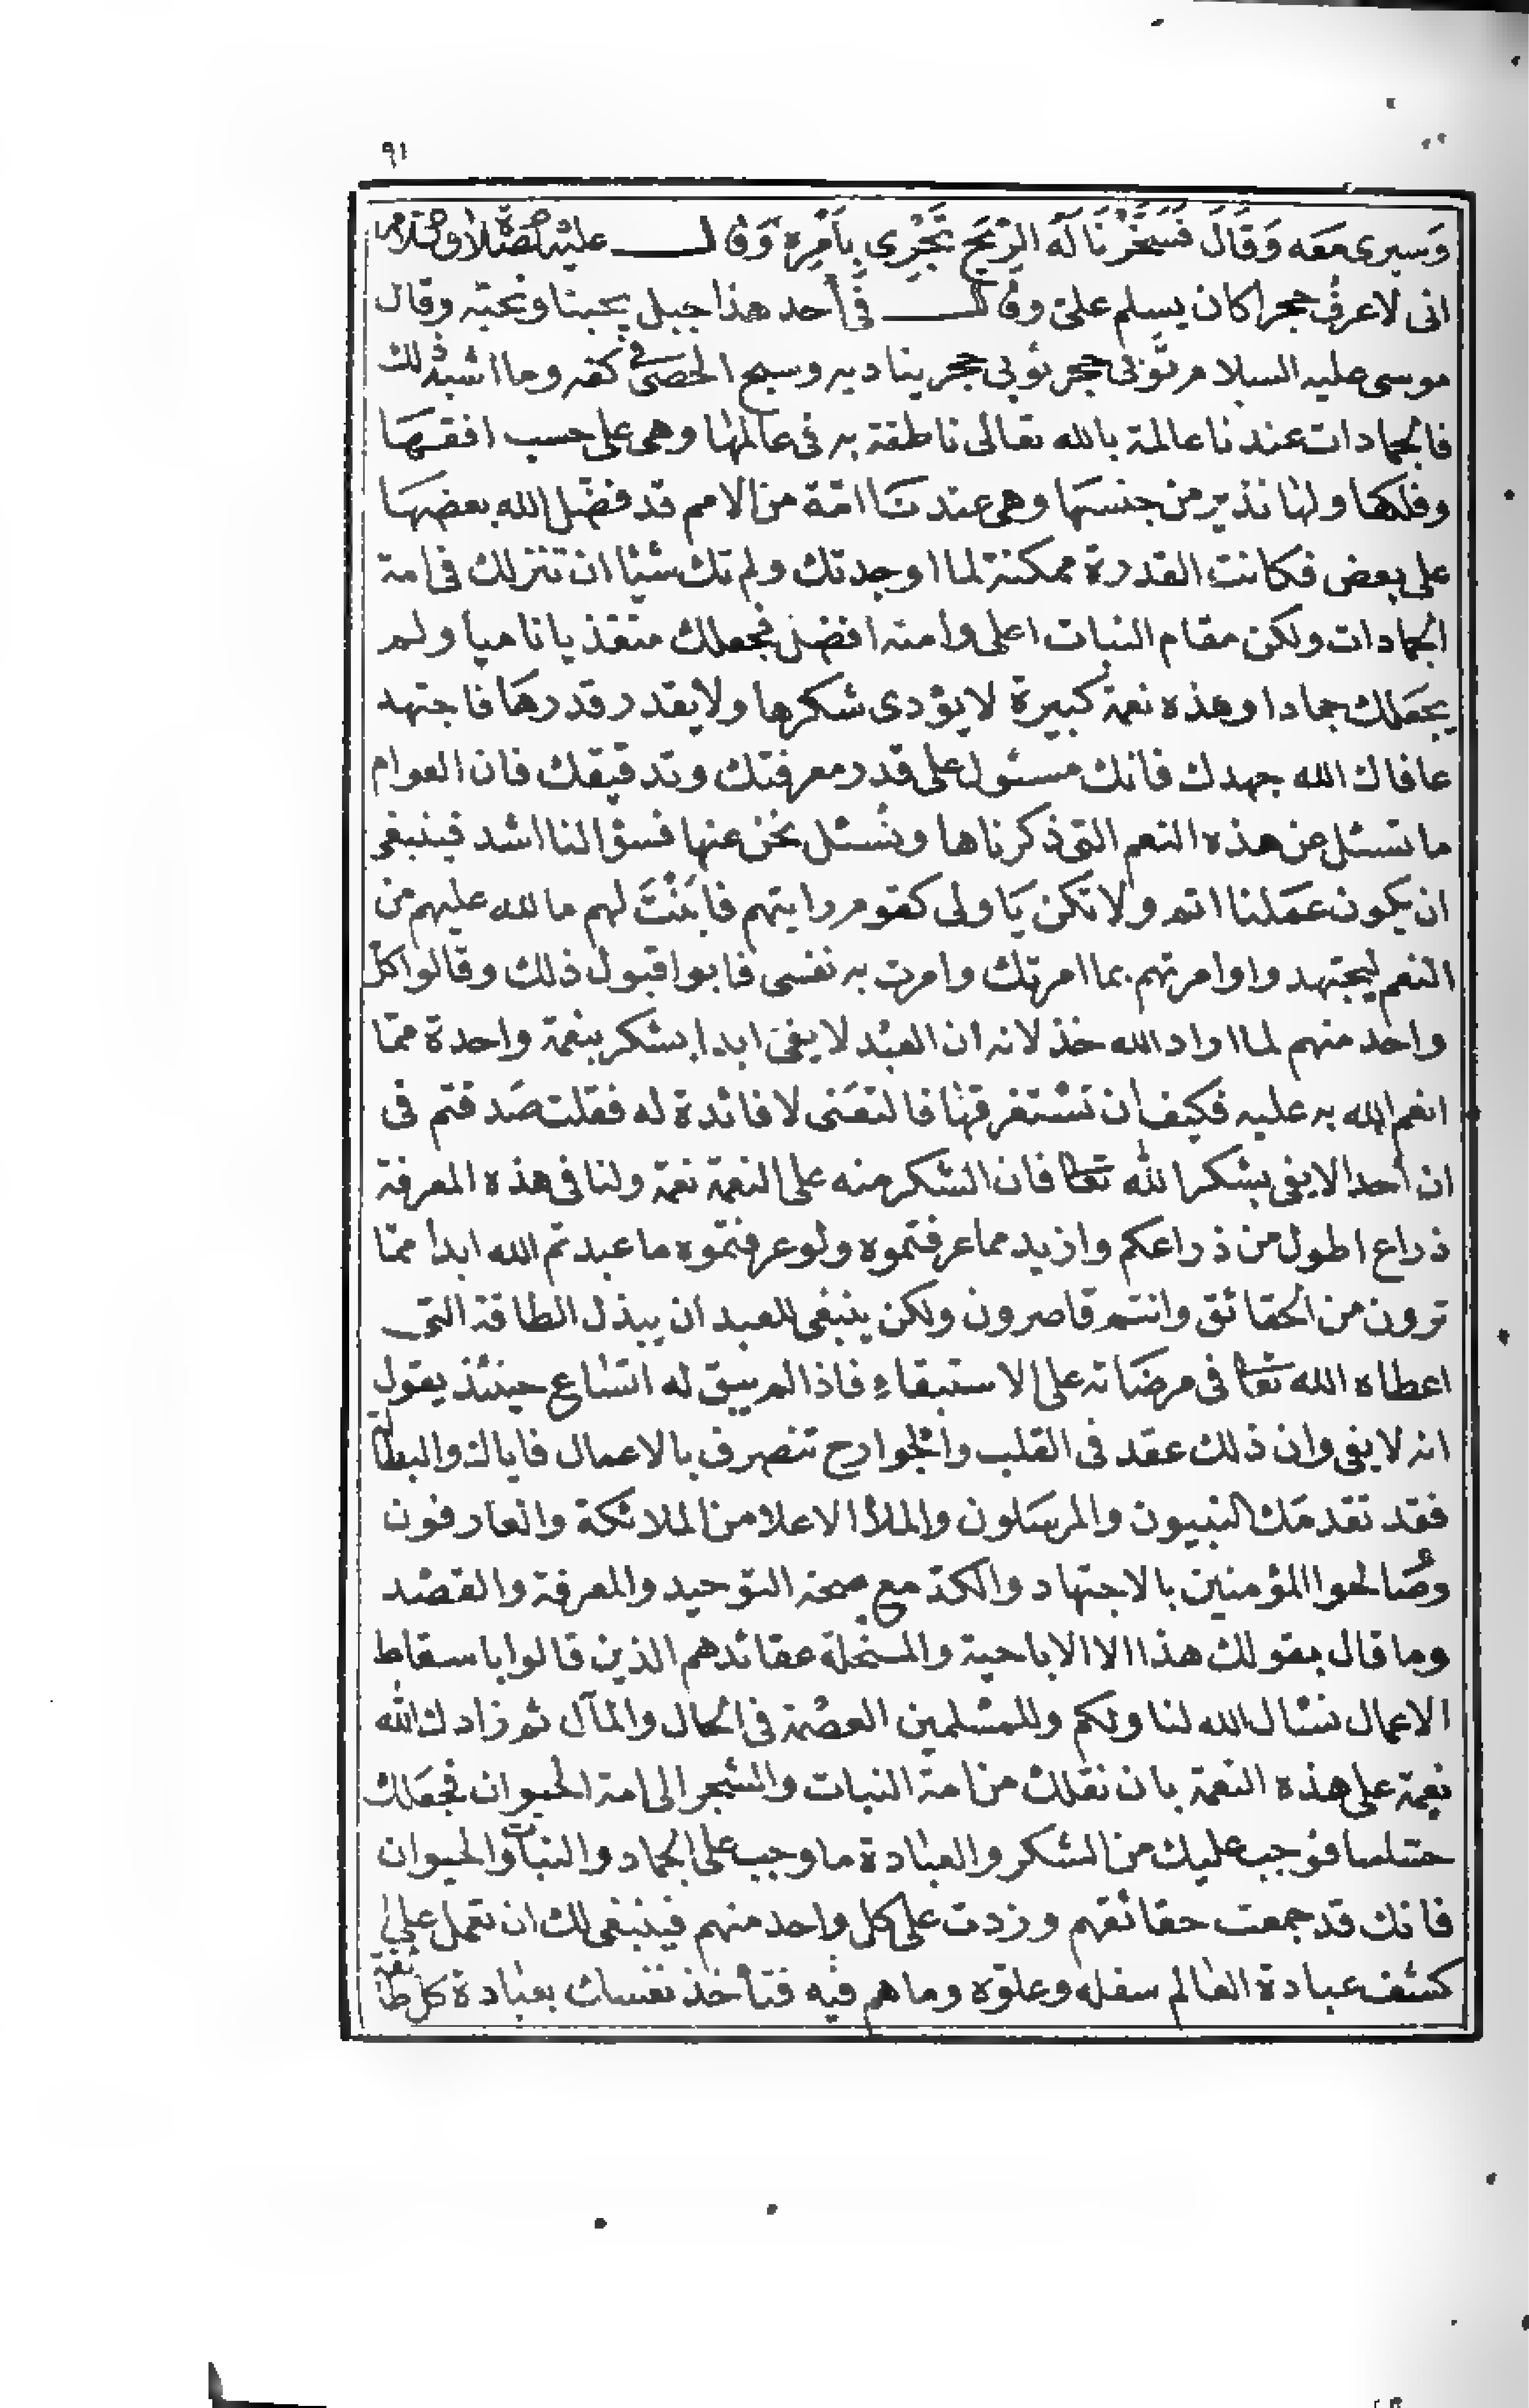 ٩١
وَسبرى مَعَه وَقَالَ فَسَخَّرْنَا لَه الرّيحَ تَجْرِى بِاَمْرِه وَقالـــ عليْه الصَّلاة والسلام
انى لاعرفُ حجرا كان يسلم علىّ وقالـــ فى أحد هذا جبل يحبنا ونحبّه وقال
موسى عليه السلام ثَوْبى حجر ثوبى حجر يناديه وسبح الحصَى فى كفه وما اشبه ذلك
فالجمادات عندنا عالمة بالله تعالى ناطقة به فى عالمها وهى على حسب افقهَا
وفلكها ولها نذير من جنسهَا وهى عندنَا امّة من الامم قد فضّل الله بعضهَا
على بعض فكانت القدرة ممكنة لما اوجدتك ولم تك شيْا ان تنزلك فى امة
الجمادات ولكن مقام النبات اعلى وامته افضل فجعلك متغذيا ناميا ولم
يجعَلك جمادا وهذه نعمة كبيرة لا يؤدى شكرها ولا يقدر قدرهَا فاجتهد
عافاك الله جهدك فانك مسئول على قدر معرفتك وتدقيقك فان العوام
ما تسئل عن هذه النعم التى ذكرناها ونُسئل نحن عنها فسؤالنا اشد فينبغى
ان يكون عمَلنا اتم ولا تكن يَا ولى كقوم رايتهم فابَنْتَ لهم ما لله عليهم من
النعم ليجتهدوا وامرتهم بما امرتك وامرت به نفسى فابوا قبول ذلك وقالوا كل
واحد منهم لما اراد الله خذلانه ان العبْد لا يفى ابدا بشكر بنعمة واحدة ممّا
انعم الله به عليه فكيف أن تسْتغرقها فالتعَنى لا فائدة له فقلت صَدقتم فى
ان أحدا لا يفى بشكر الله تعا فان الشكر منه على النعمة نعمة ولنا فى هذه المعرفة
ذراع اطول من ذراعكم وازيد مما عرفتموه ولو عرفتموه ما عبدتم الله ابدا ممّا
ترون من الحقائق وانتم قاصرون ولكن ينبغى للعبد ان يبذل الطاقة التى
اعطاه الله تعا فى مرضَاته على الاستبقاءِ فاذا لم يبق له اتسَاع حينئذ يقول
انه لا يفى وان ذلك عقد فى القلب والجوارح تنصرف بالاعمال فاياك والبطالة
فقد تقدمَك النبيون والمرسَلون والملأ الاعلا من الملائكة والعارفون
وصَالحوا المؤمنين بالاجتهاد والكدّ مع صحة التوحيد والمعرفة والقصْد
وما قال بقولك هذا الا الاباحية والمنحلة عقائدهم الذين قالوا باسقاط
الاعمال نسْال الله لنا ولكم وللمسْلمين العصْمة فى الحال والمآل ثم زادك الله
نعمة على هذه النعمة بان نقلك من امة النبات والشجر الى امة الحيوان فجعَلك
حسّاسا فوجب عليك من الشكر والعبادة ما وجب على الجماد والنبات والحيوان
فانك قد جمعت حقائقهم وزدت على كل واحد منهم فينبغى لك ان تعمل على
كشف عبادة العالم سفله وعلوّه وما هم فيه فتأخذ نفسك بعبادة كل طائفة